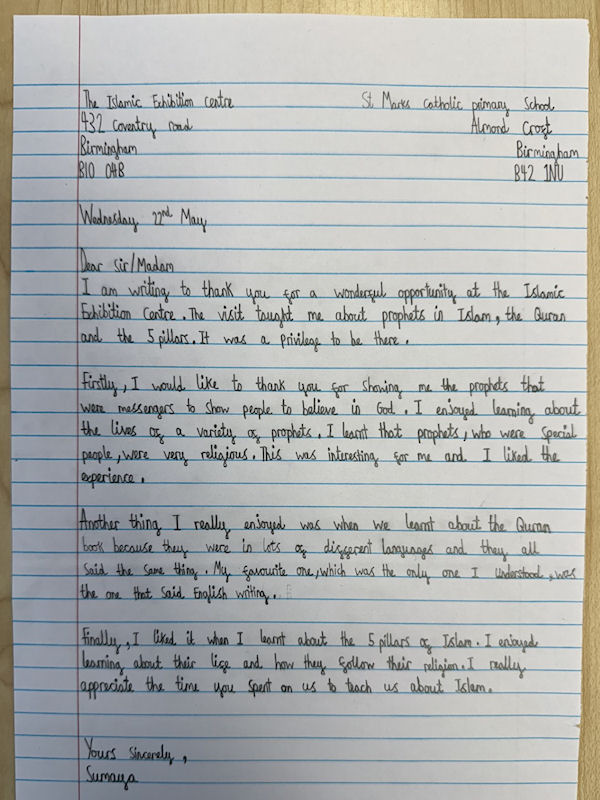 The Islamic Exhibition centre St Marks catholic primary School
432 Coventry road Almond Croft
Birmingham Birmingham
B10 0HB B42 1NU
Wednesday 22nd May
Dear Sir/Madam
I am writing to thank you for a wonderful opportunity at the Islamic
Exhibition Centre. The visit taught me about prophets in Islam, the Quran
and the 5 pillars. It was a privilege to be there.
Firstly, I would like to thank you for showing me the prophets that
were messengers to show people to believe in God. I enjoyed learning about
the lives of a variety of prophets. I learnt that prophets, who were special
people, were very religious. This was interesting for me and I liked the
experience.
Another thing I really enjoyed was when we learnt about the Quran
book because they were in lots of different languages and they all
said the same thing. My favourite one, which was the only one I understood, was
the one that said English writing.
Finally, I liked it when I learnt about the 5 pillars of Islam. I enjoyed
learning about their life and how they follow their religion. I really
appreciate the time you spent on us to teach us about Islam.
Yours Sincerely,
Sumaya